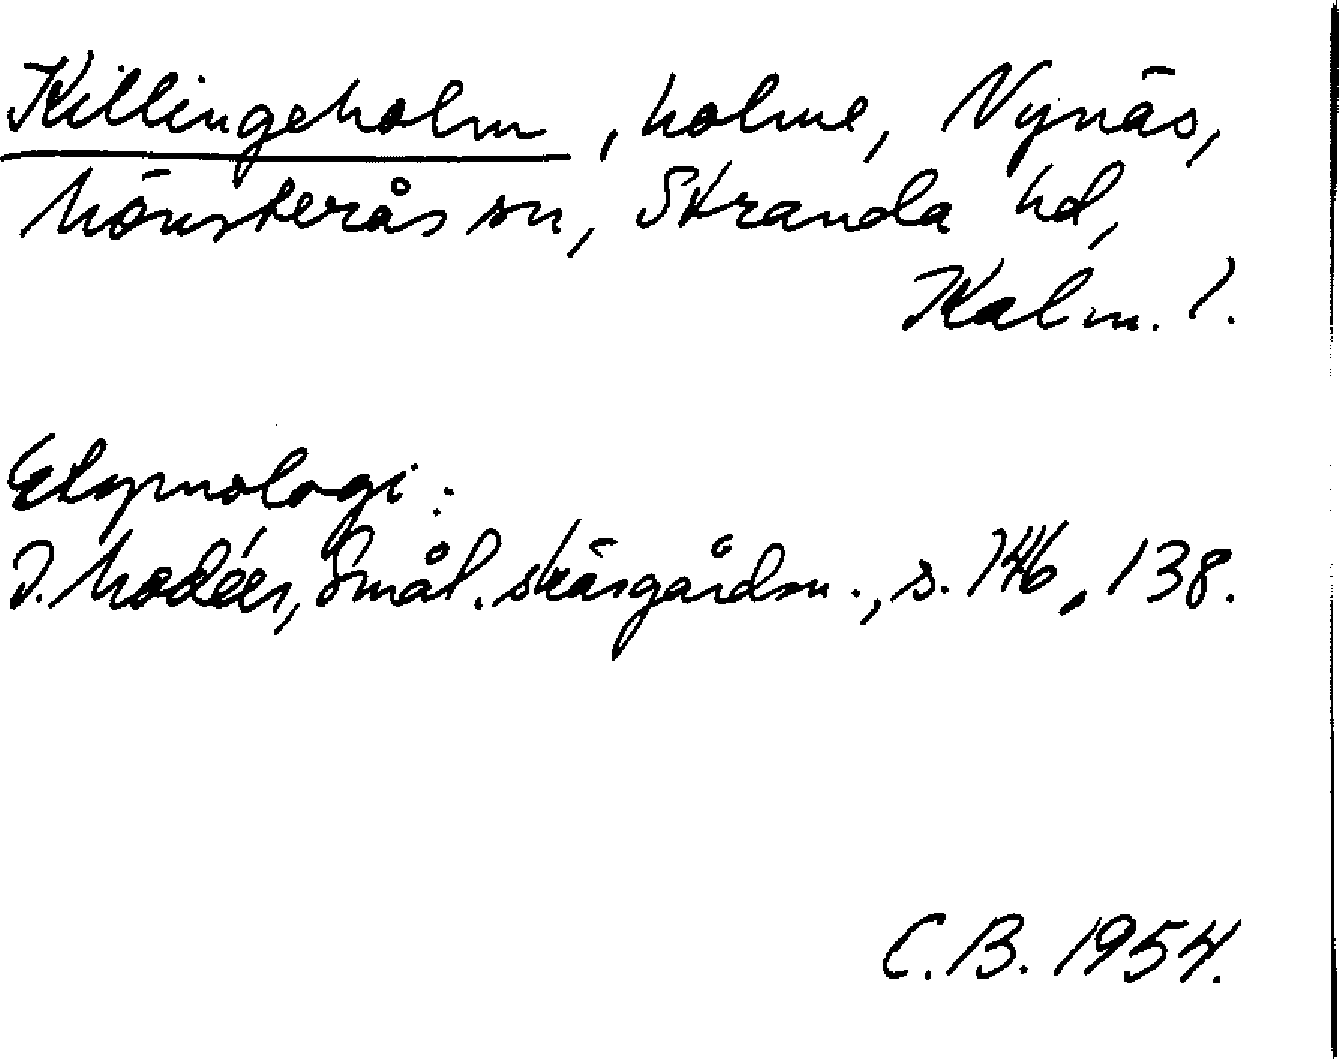 Killingeholm, holme, Nynäs,
Mönsterås sn, Stranda hd,
Kalm. l.
Etymologi:
I. Modéer, Smål. skärgårdsn., s. 146, 138.
C.B. 1954.